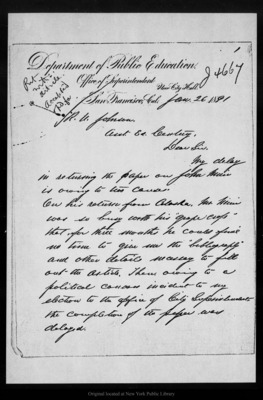 Department of Public Education,
Office of Superintendent
New City Hall
San Francisco, Cal. Jan. 26 1891
R. U. Johnson
Asst Ed. Century,
Dear Sir
My delay
in returning the paper on John Muir
is owing to two causes
On his return from Alaska, Mr Muir
was so busy with his "grape crop"
that for three months he could find
no time to give me the
and other details necessary to fill
out the article. Then owing to a
political canvass incident to my
election to the office of City Superintendent
the completion of the paper was
delayed.
Original located at New York Public Library